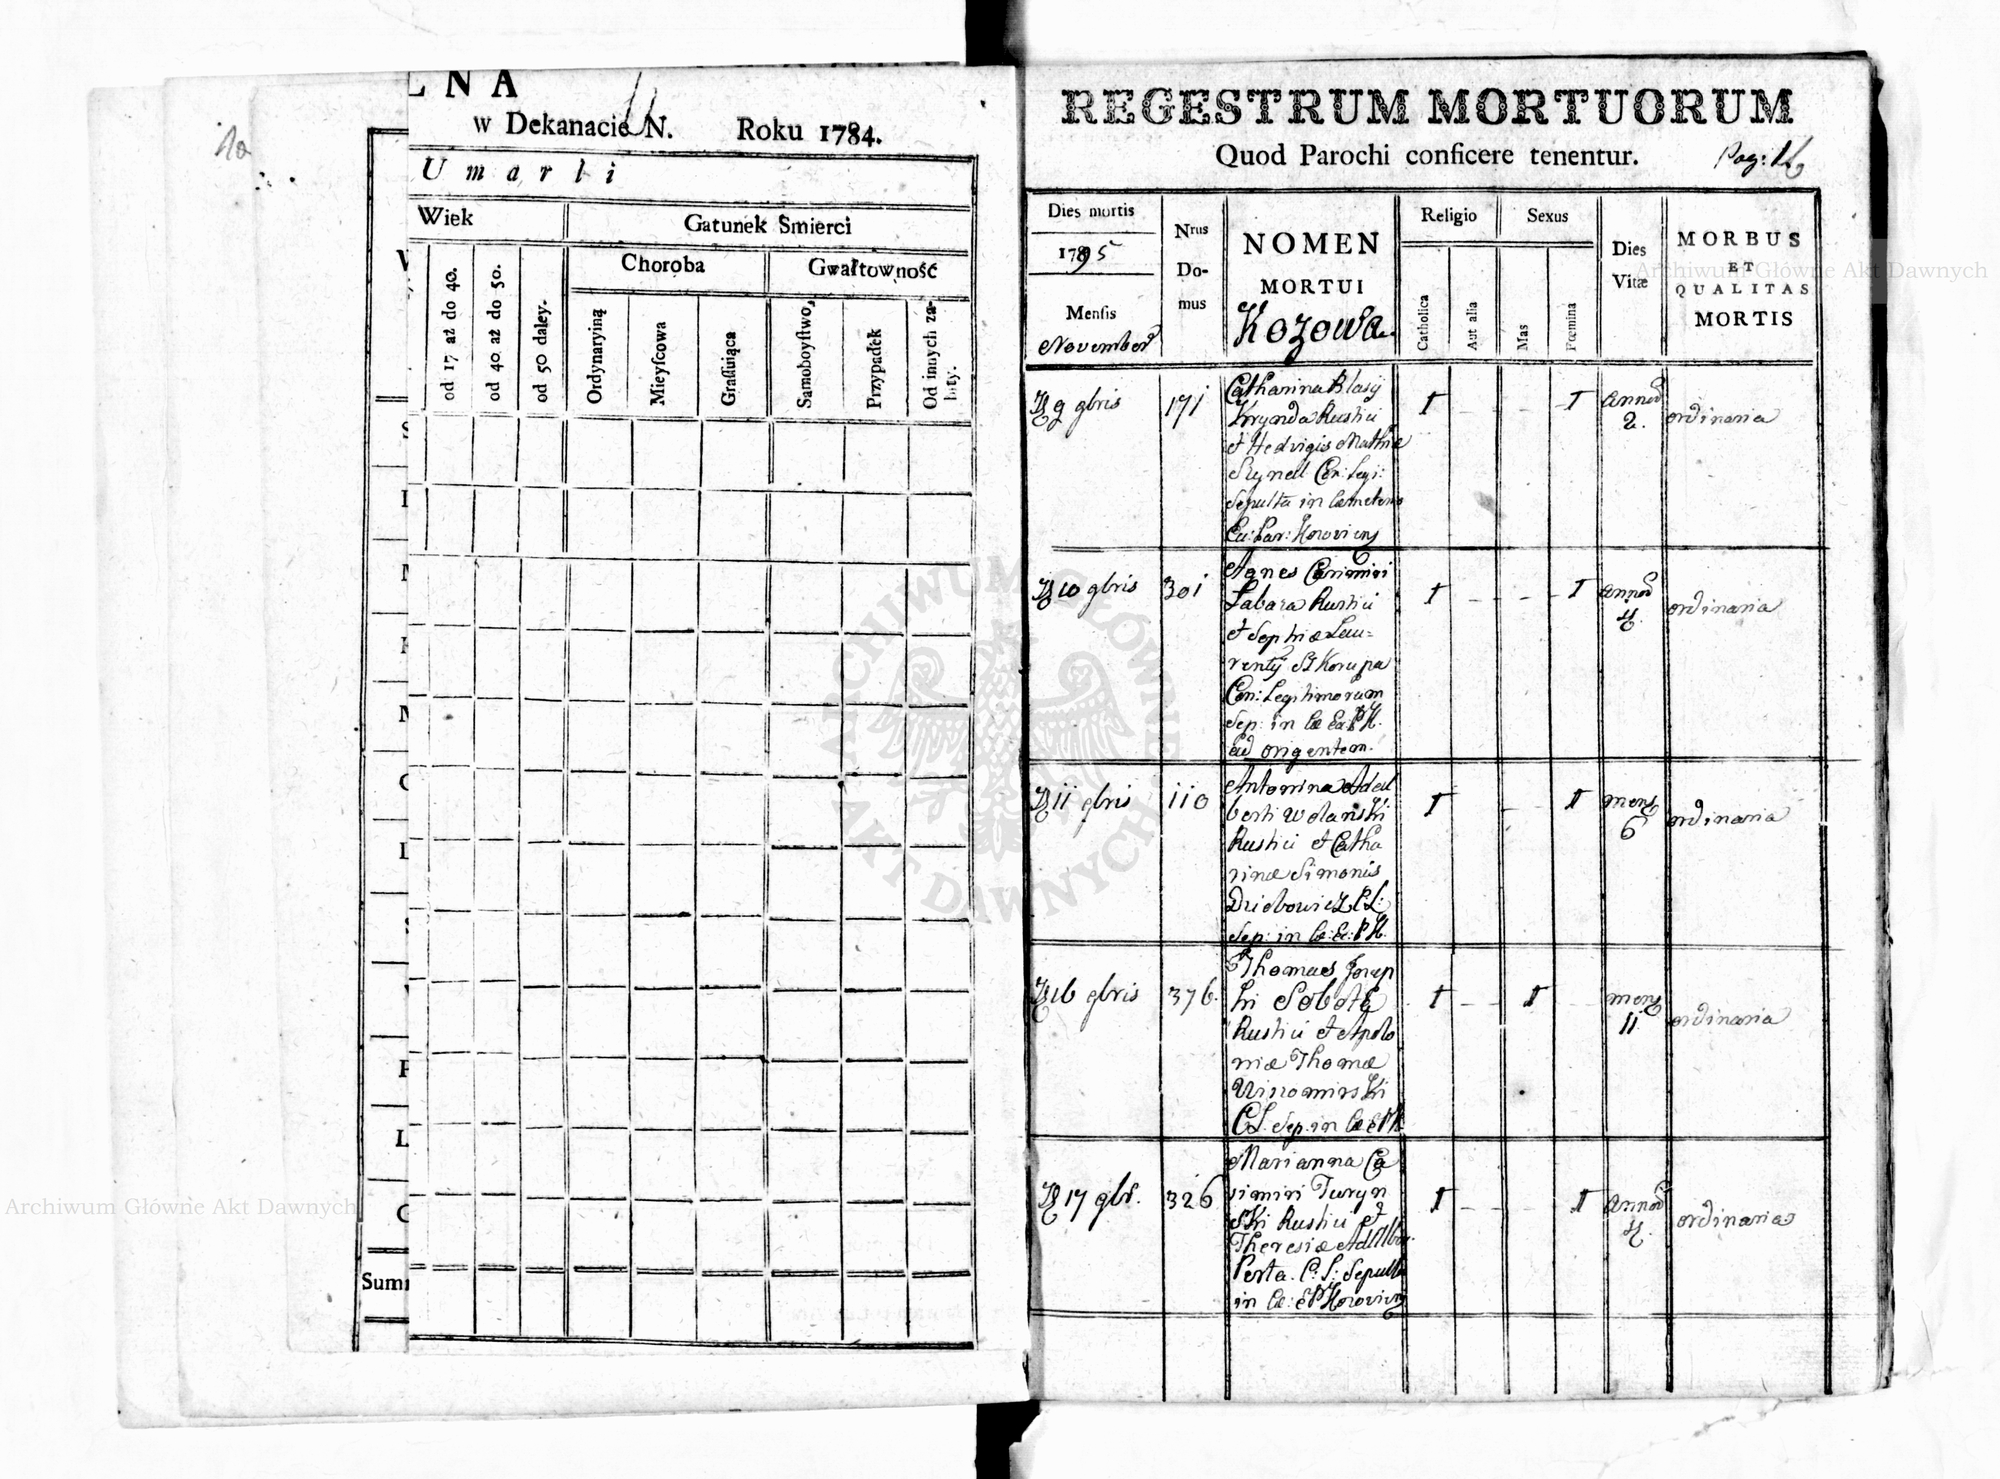 LNA
w Dekanacie N. Roku 1784.
Umarli
Wiek
Gatunek Smierci
Choroba
Gwałtowność
od 17 aż do 40.
od 40 aż do 50.
od 50 daley.
Ordynaryiną
Mieyſcowa
Graſſuiąca
Samoboyſtwo,
Przypadek
Od innych za-
bity.
Summ
REGESTRUM MORTUORUM
Quod Parochi conficere tenentur.
Pag: 16
Dies mortis
1795
Menſis
November
Nrus
Do-
mus
NOMEN
MORTUI
Kozowa
Religio
Catholica
Aut alia
Sexus
Mas
Fœmina
Dies
Vitæ
MORBUS
ET
QUALITAS
MORTIS
9 gbris
171
Catharina Blasij
Krynda Rustici
et Hedvigis Mathiæ
Con: Legi:
Sepulta in Cœmeterio
I
I
Annor
2.
ordinaria
10 gbris
301
Agnes Casimiri
Labara Rustici
et Sophiæ Lau=
rentij Skorupa
Con: Legitimorum
Sep: in Cœ Ec P K.
ad orientem.
I
I
Annor
4.
ordinaria
11 gbris
110
Antonina Adal
berti Wolanski
Rustici et Catha
rinæ Simonis
Dziobowicz C: L:
Sep: in Cœ: Ec: P K.
I
I
mens
6
ordinaria
16 gbris
376.
Thomas Josep
hi Sobota
Rustici et Apolo
niæ Thomæ
Winomirski
CL. Sep. in Cœ E P K
I
I
mens
11
ordinaria
17 gbr.
326
Marianna Ca
simiri Turyn
ski Rustici et
Theresiæ Adalber.
Perta. C: L: Sepulta
in Cœ: E P
I
I
Annor
4.
ordinaria
ARCHIWUM GŁÓWNE AKT DAWNYCH
Archiwum Główne Akt Dawnych
Archiwum Główne Akt Dawnych